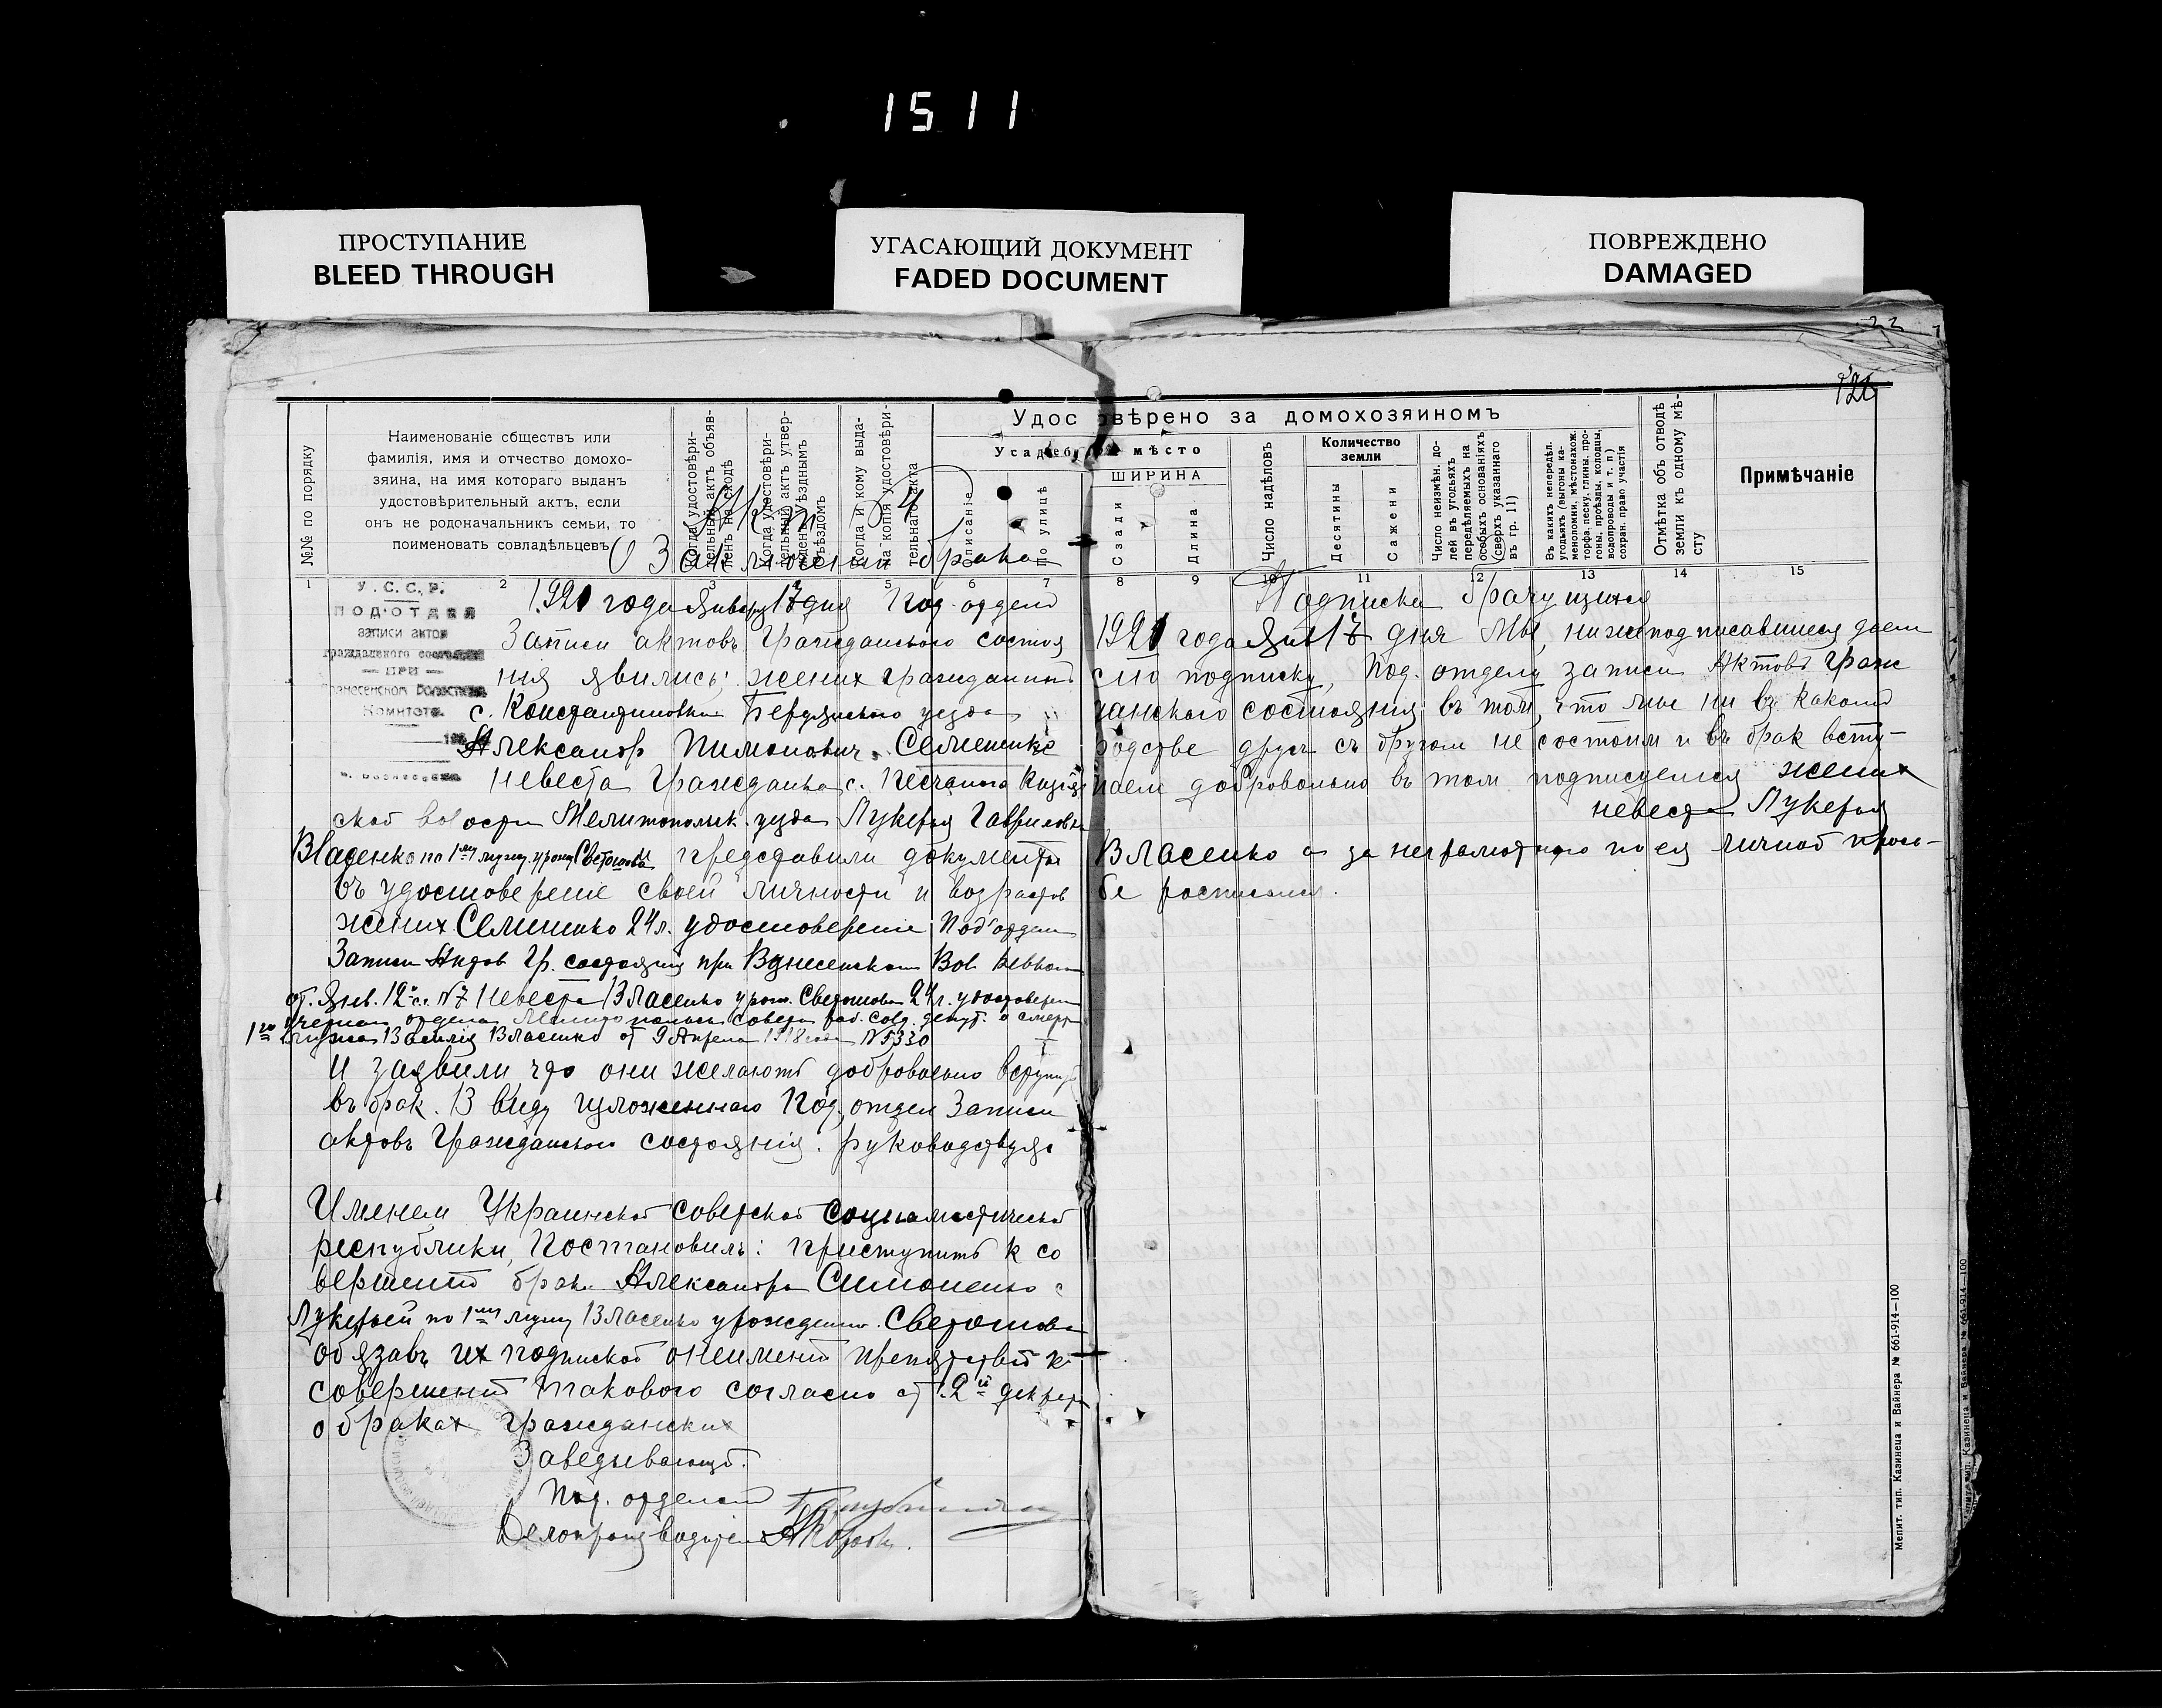 1511
ПРОСТУПАНИЕ
BLEED THROUGH
УГАСАЮЩИЙ ДОКУМЕНТ
FADED DOCUMENT
ПОВРЕЖДЕНО
DAMAGED
22
126
№№ по порядку
Наименованіе обществъ или
фамилія, имя и отчество домохо-
зяина, на имя котораго выданъ
удостовѣрительный актъ, если
онъ не родоначальникъ семьи, то
поименовать совладѣльцевъ
Когда удостовѣри-
тельный актъ объяв-
ленъ на сходѣ
Когда удостовѣри-
тельный актъ утвер-
жденъ уѣзднымъ
съѣздомъ
Когда и кому выда-
на копія удостовѣри-
тельнаго акта
Удостовѣрено за домохозяиномъ
Усадебное мѣсто
ШИРИНА
Описаніе
По улицѣ
Сзади
Длина
Число надѣловъ
Количество
земли
Десятины
Сажени
Число неизмѣн. до-
лей въ угодьяхъ
передѣляемыхъ на
особыхъ основаніяхъ
(сверхъ указаннаго
въ гр. 11)
Въ какихъ непередѣл.
угодьяхъ (выгоны ка-
меноломни, мѣстонахож.
торфа, песку, глины, про-
гоны, проѣзды, колодцы,
водопроводы и т. п)
сохран. право участія
Отмѣтка объ отводѣ
земли къ одному мѣ-
сту
Примѣчаніе
1 2 3 5 6 7 8 9 10 11 12 13 14 15
Акт 54
О Заключении брака
У. С. С. Р.
ПОДОТДЕЛ
записи актов
гражданского состояния
— ПРИ —
Вознесенском Волостном
Комитете.
1921 года Января 17 дня Под-отдел
Записи актовъ гражданского состоя
ния явились: жених гражданинъ
с. Константиновки Бердянского уезда
Александр Пимонович Семененко
Невеста Гражданка с. Песчаного
ской волости Мелитопольск. уезда Лукерья Гавриловна
Власенко по 1му мужу, урожд. Светошова представили документы
въ удостоверение своей личности и возрастов
жених Семененко 24 л. удостоверение Под'отдел
Записи Актов Гр. состояния при Вознесенском Вол Ревком
от. Янв. 12 с.г. №7 Невеста Власенко урож. Светошова 24 л. удостоверен
отдела Мелитопольск совета раб. солд. депут. о смерт
1го мужа Василия Власенко от 9 Апреля 1918 года №5330
И заявили, что они желают добровольно вступить
въ брак. В виду изложенного Под, отдел Записи
актовъ Гражданского состояния. руководствуяс
Именем Украинской советской социалистической
республики, Постановилъ: приступить к со
вершению брака Александра Симоненко с
Лукерьей по 1му мужу Власенко урожденн. Светошова
обязавъ их подпиской о неимении препятствий к
совершению такового согласно ст. 2й декрета
о браках гражданских
Заведывающий.
Под. отделом
Делопроизводитель
Подписка брачущихся
1921 года Янв 17 дня Мы, нижеподписавшиеся даем
сию подписку, Под. отделу записи Актовъ Граж
данского состояния въ том, что мы ни въ каком
родстве другъ съ другом не состоим и въ брак всту-
паем добровольно въ том подписуемся жених
невеста Лукерья
Власенко а за неграмотную по ея личной прось-
бе росписался.
Мелит. тип. Казинеца и Вайнера № 661-914—100
тип. Казинеца и Вайнера № 661-914—100